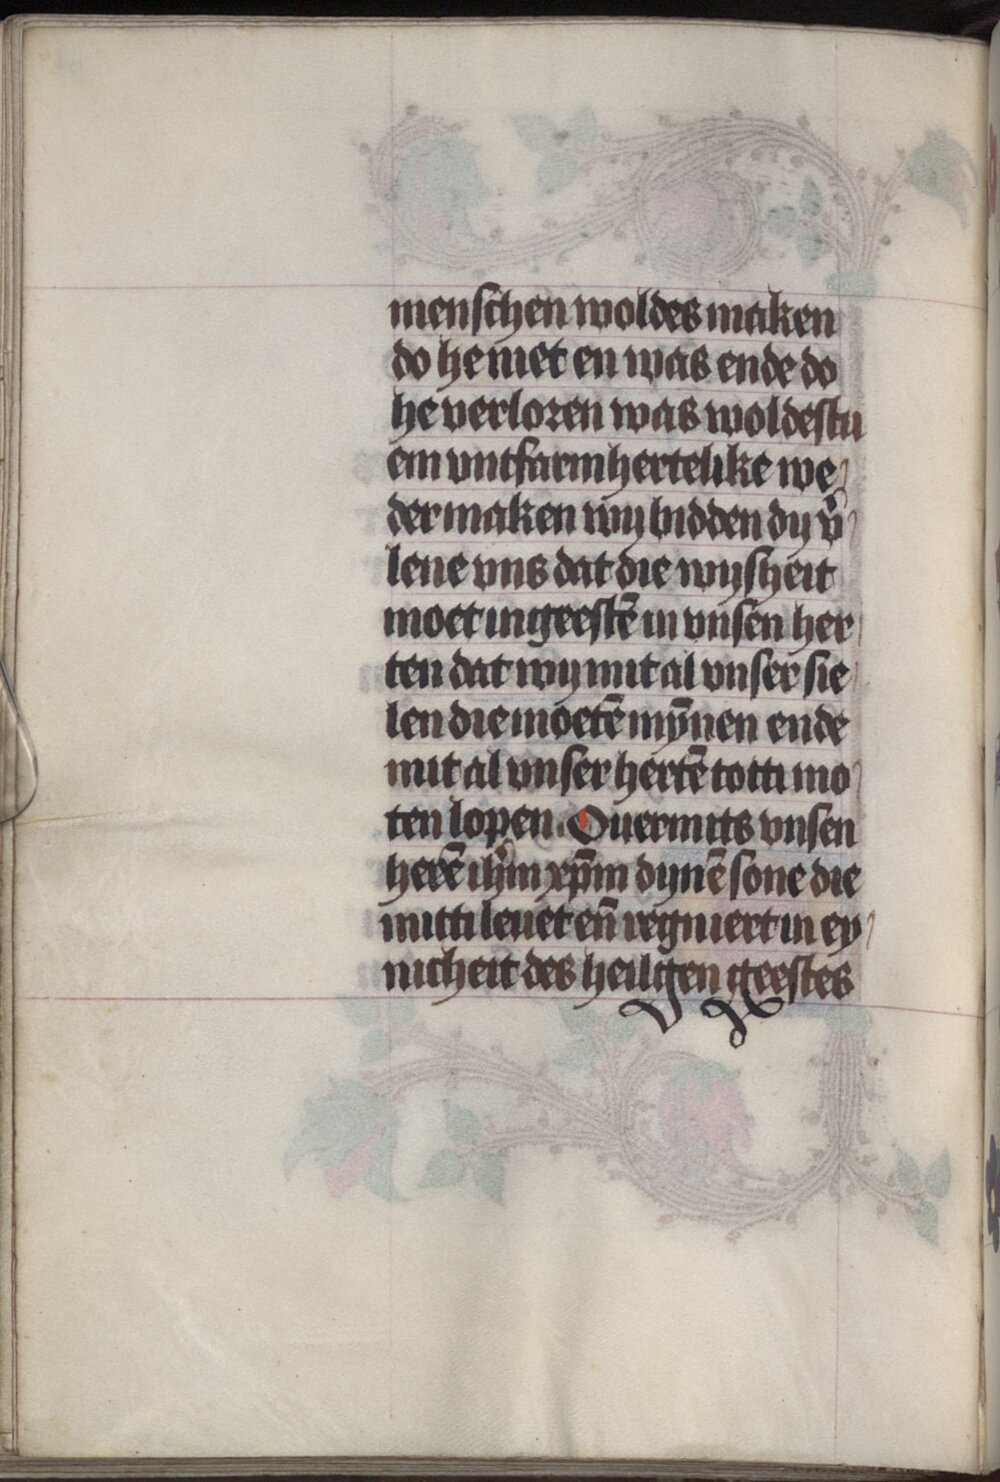 menschen woldes maken
do he niet en was ende do
he verloren was woldestu
em vntfarmhertelike we
der maken wy bidden dy v̊
lene vns dat die wysheit
moet ingeestē in vnsen her
ten dat wy mit al vnser sie
len die moetē mȳnen ende
mit al vnser hertē totti mo
ten lopen. Ouermits vnsen
herē ihm̄ xp̄m dynē sone die
mitti leuet en̄ regniert in ey
nicheit des heiligen geestes